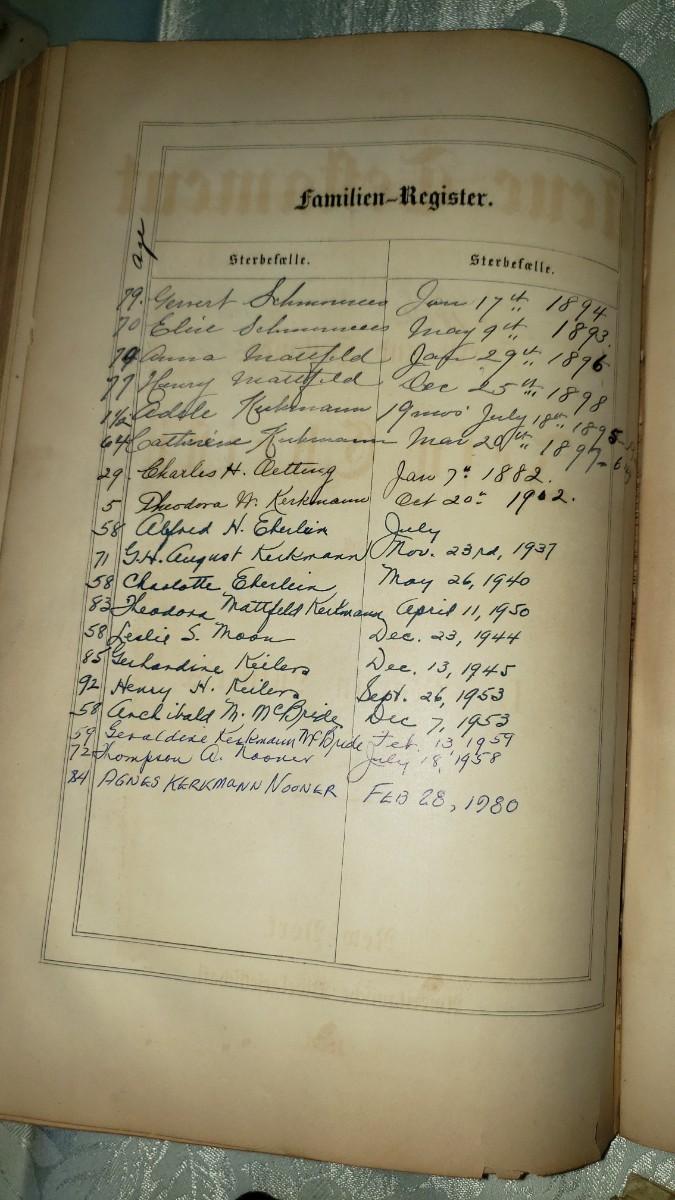 Familien-Register.
age
Sterbefælle. Sterbefælle.
79. Gerrert Jan 17th 1894
70 Elise May 9th 1893.
79 Anna Mattfeld Jan 29th 1896
77 Henry Mattfeld Dec 25th 1898
1½ Adele Kerkmann 19 mos July 18th 1895
64 Catherine Kerkmann Mar 20th 1897
29. Charles H. Oetting Jan 7th 1882.
5 Theodora W. Kerkmann Oct 20th 1902.
58 Alfred H. Eberlein July
71 G.H. August Kerkmann Nov. 23rd, 1937
58 Charlotte Eberlein May 26, 1940
83 Theodora Mattfeld Kerkmann April 11, 1950
58 Leslie S. Moon Dec. 23, 1944
85 Gerhardine Keilers Dec. 13, 1945
92 Henry H. Keilers Sept. 26, 1953
58 Archibald M. McBride Dec 7, 1953
59 Geraldine Kerkmann McBride Feb. 13, 1959
72 Thompson A. Nooner July 18, 1958
84 AGNES KERKMANN NOONER FEB 28, 1980